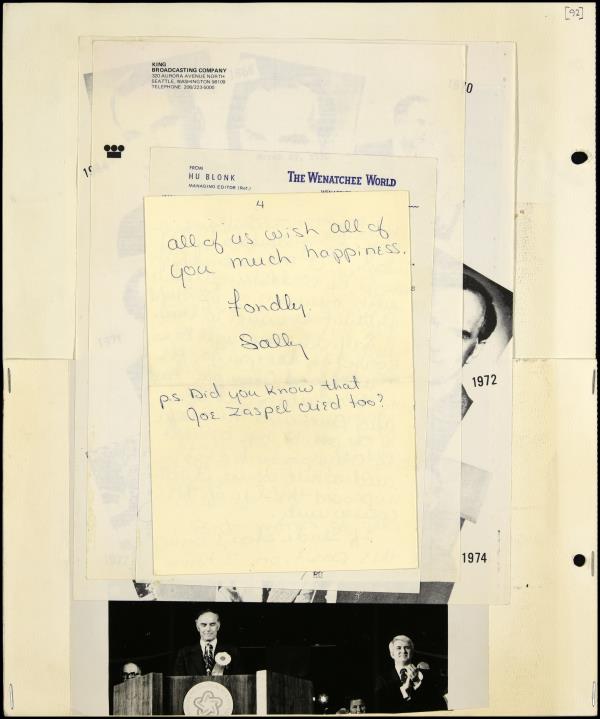 [92]
KING
BROADCASTING COMPANY
320 AURORA AVENUE NORTH
SEATTLE, WASHINGTON 98109
TELEPHONE 206/223-5000
FROM
HU BLONK
MANAGING EDITOR (Ret.)
THE WENATCHEE WORLD
4
all of us wish all of
you much happiness.
Fondly.
Sally
p.s. Did you know that
Joe Zaspel cried too?
1972
1974